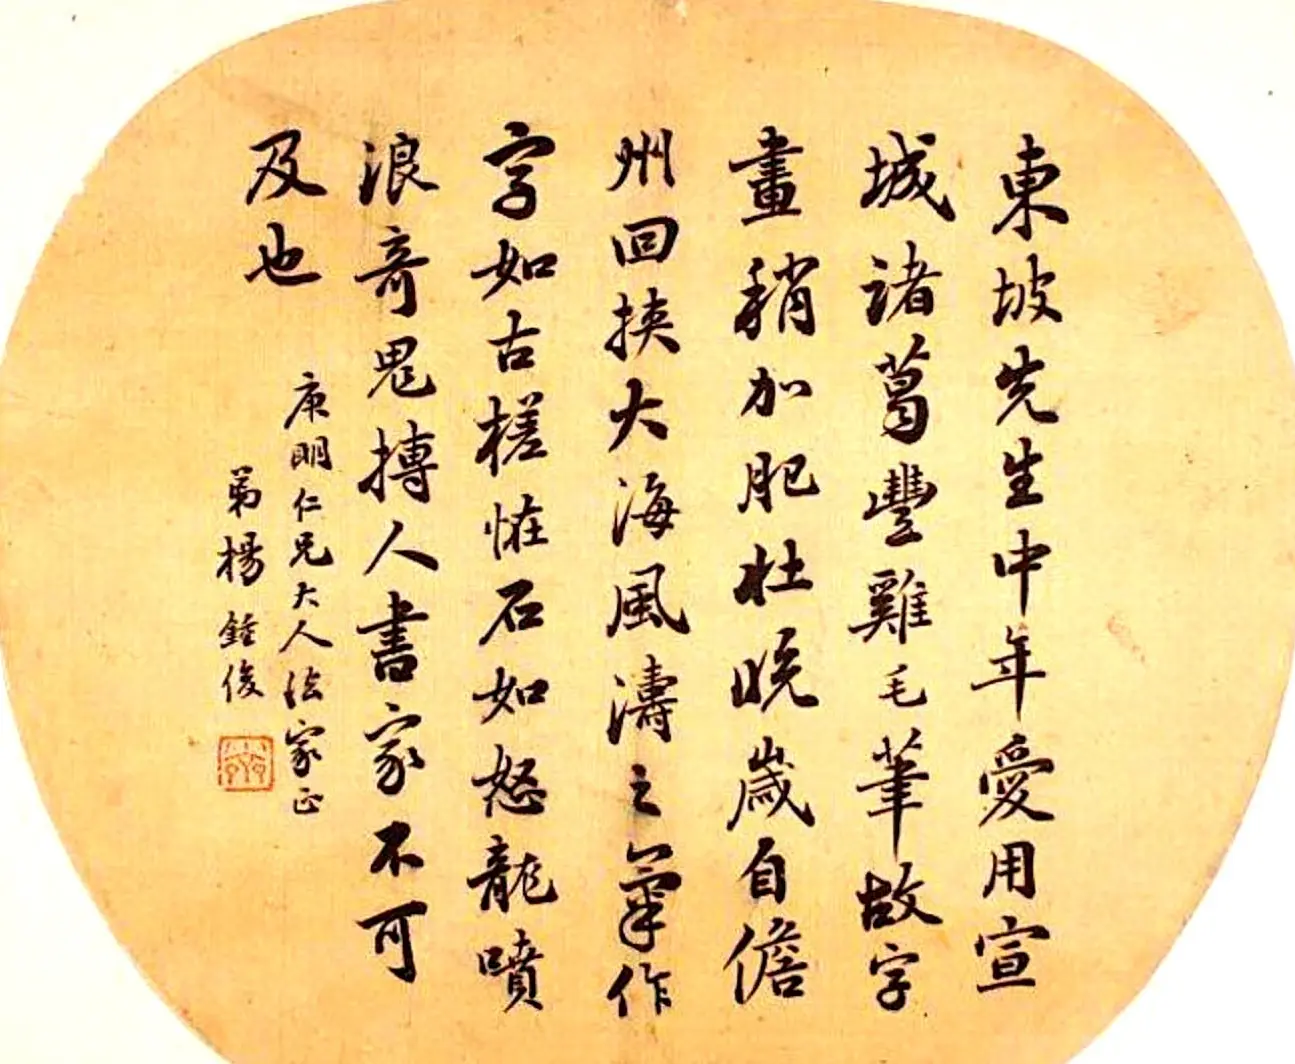 東坡先生中年愛用宣
城諸葛豐雞毛筆故字
畫稍加肥杜晚歲自儋
州回挾大海風濤之氣作
字如古槎怪石如怒龍噴
浪奇鬼搏人書家不可
及也
庚明仁兄大人法家正
弟楊鍾俊